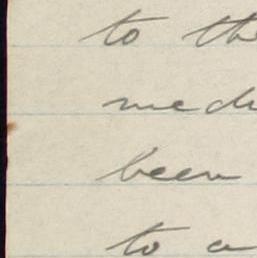 to the
med
been
to a